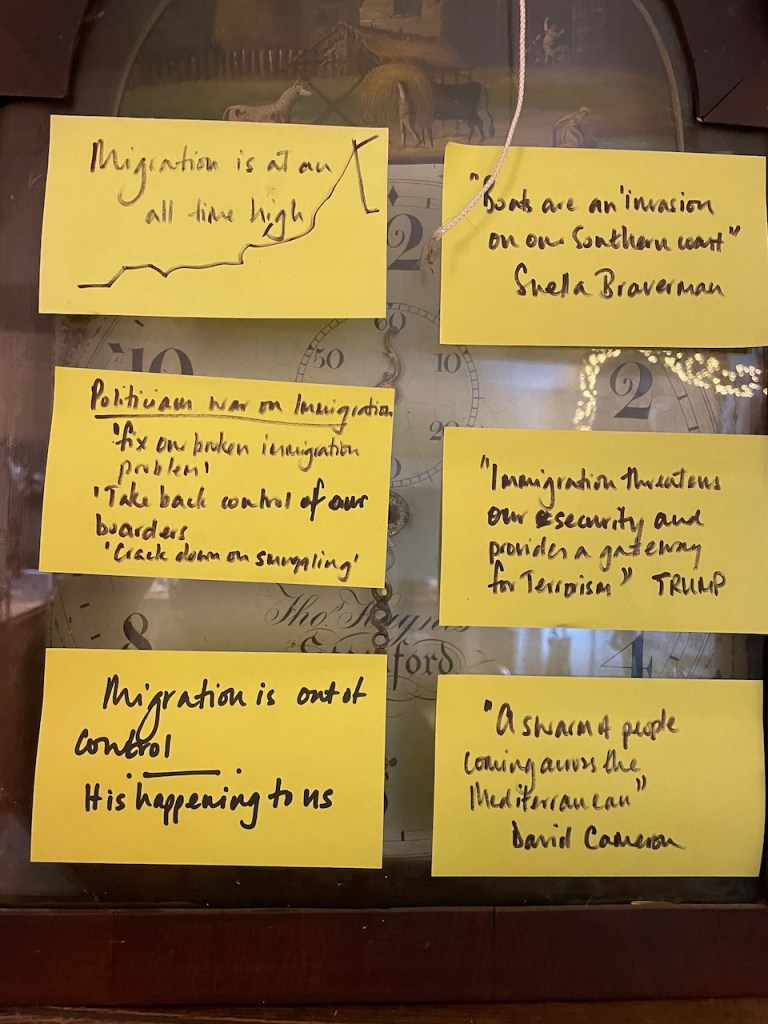 Migration is at an
all time high
"Boats are an 'invasion
on our Southern coast"
Suella Braverman
Politicians war on Immigration
'fix our broken immigration
problem'
'Take back control of our
boarders
'Crack down on smuggling'
"Immigration threatens
our security and
provides a gateway
for Terrorism" TRUMP
Migration is out of
control
It is happening to us
"A swarm of people
coming across the
Mediterranean"
David Cameron
12
60
50
10
10
2
20
8
4
Thos Haynes
Stamford